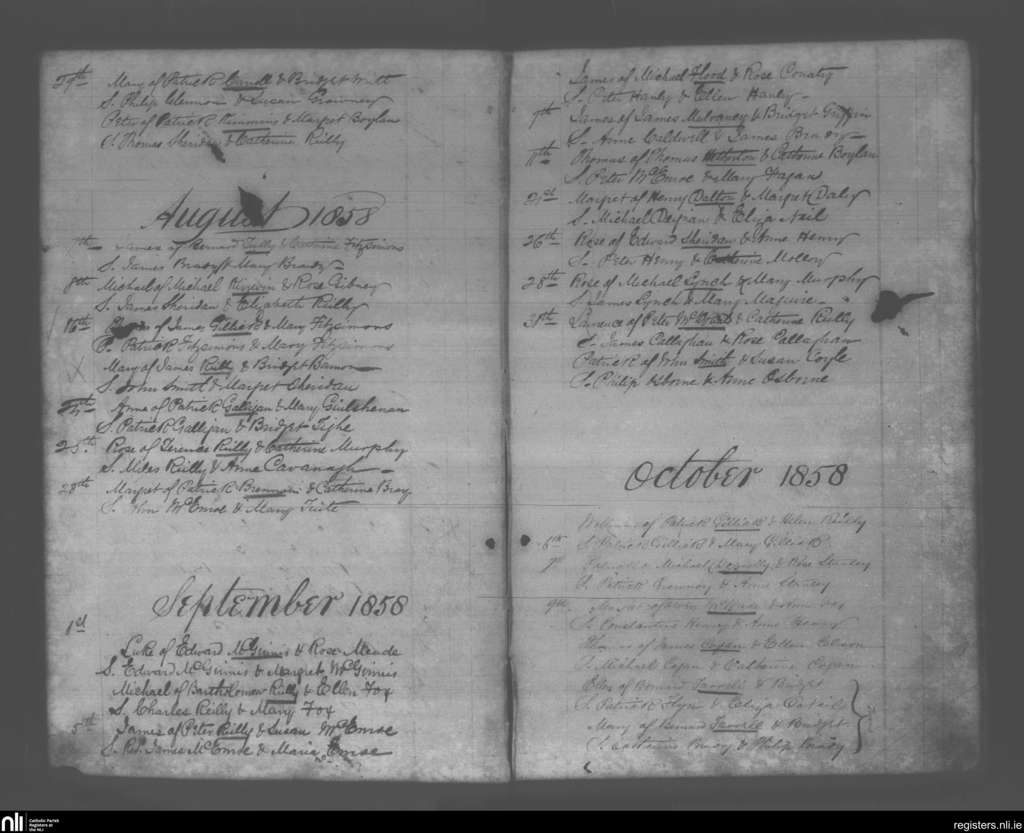 29th Mary of Patrick & Bridget Smith
S. Philip Clennon & Susan Growney
Peter of Patrick Kimmins & Margret Boylan
S. Thomas Sheridan & Catherine Reilly
August 1858
7th James of Bernard Tully & Catherine Fitzsimons
S. James Brady & Mary Brady
8th Michael of Michael & Rose Gibney
S. James Sheridan & Elizabeth Reilly
16th of James Gillick & Mary Fitzsimons
S. Patrick Fitzsimons & Mary Fitzsimons
Mary of James Reilly & Bridget Bannon
S. John Smith & Margret Sheridan
Anne of Patrick Galligan & Mary Giulshenan
S. Patrick Galligan & Bridget Tighe
25th Rose of Terence Reilly & Catherine Murophy
S. Miles Reilly & Anne Cavanagh
28th Margret of Patrick Brennan & Catherine Bray
S. John McEnroe & Mary Tuite
September 1858
1st
Luke of Edward McGinnis & Rose Meade
S. Edward McGinnis & Margret McGinnis
Michael of Bartholomew Reilly & Ellen Fox
S. Charles Reilly & Mary Fox
5th James of Peter Reilly & Susan McEnroe
S. Rev. James McEnroe & Maria Enroe
James of Michael Flood & Rose Conaty
S. Peter Hanly & Ellen Hanly
7th James of James Mulvaney & Bridget Griffin
S. Anne Caldwell & James Brady
11th Thomas of Thomas & Catherine Boylan
S. Peter McEnroe & Mary Fagan
21st Margret of Henry Dalton & Margret Daly
S. Michael Deignan & Eliza Neil
26th Rose of Edward Sheridan & Anne Henry
S. Peter Henry & Catherine Molloy
28th Rose of Michael Lynch & Mary Murophy
S. James Lynch & Mary Maguire
31st Laurence of Peter & Catherine Reilly
S. James Callaghan & Rose Callaghan
Patrick of John Smith & Susan Coyle
S. Philip Osborne & Anne Osborne
October 1858
William of Patrick Gillick & Helen Reilly
6th S. Patrick Gillick & Mary Gillick
Michael Donnolly & Rose Stanley
S. Patrick Growney & Anne Stanley
9th of John & Fox
S. Constantine Henry & Anne Henry
Thomas of James Cogan & Ellen
S. Michael Cogan & Catherine Cogan
Ellen of Bernard & Bridget
S. Patrick Flyn & Eliza
Mary of Bernard & Bridget
S. Catherine Brady & Philip Brady
nli Catholic Parish
Registers at
the NLI
registers.nli.ie